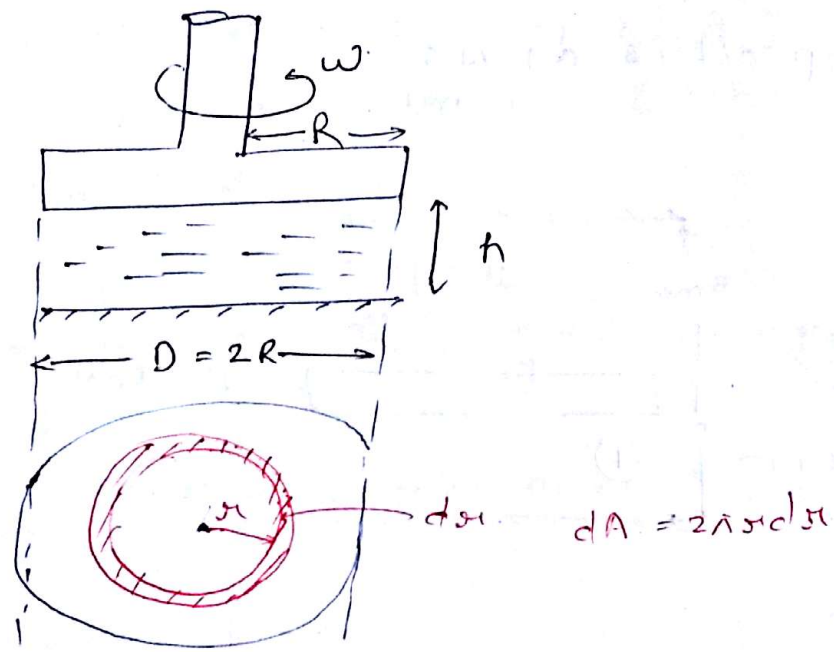 ω
R
h
D = 2R
r
dr
dA = 2πrdr